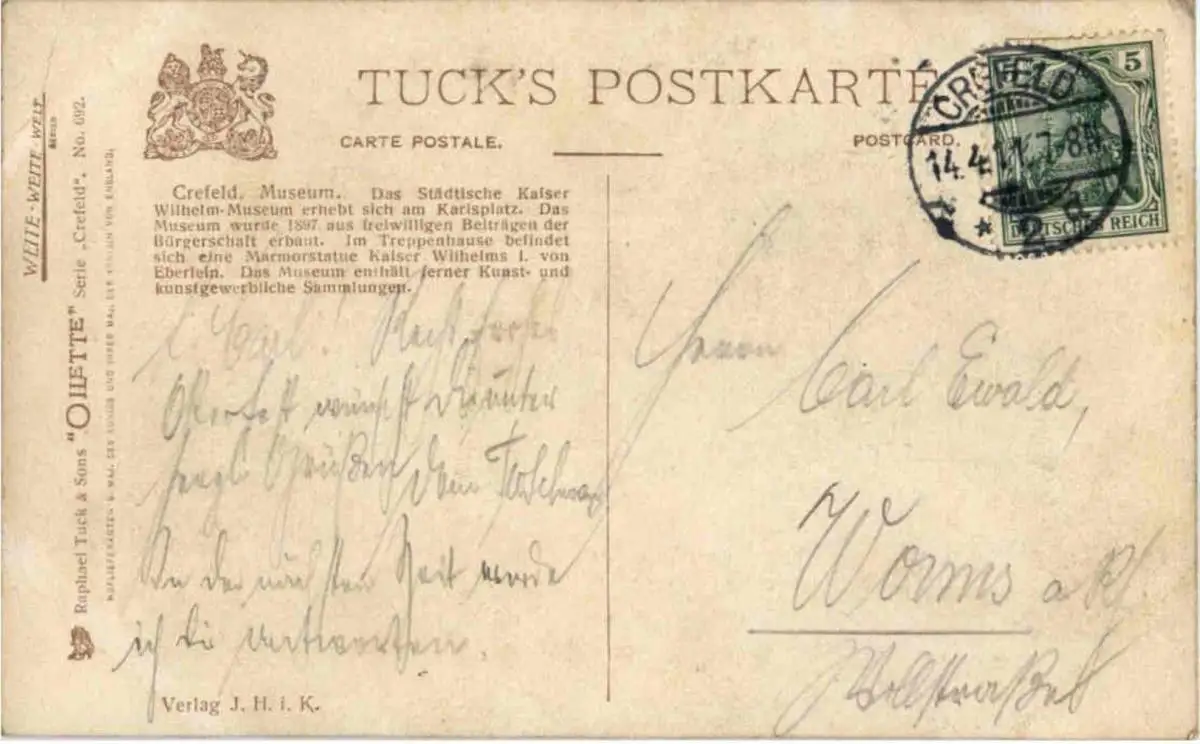 WEITE-WEITE-WELT
SERIEN
Raphael Tuck & Sons "OILETTE" Serie „Crefeld". No. 692.
TUCK'S POSTKARTE
CARTE POSTALE.
POSTCARD.
CREFELD
14.4.11.7-8N.
* 2 a
5
DEUTSCHES REICH
Crefeld, Museum. Das Städtische Kaiser
Wilhelm-Museum erhebt sich am Karlsplatz. Das
Museum wurde 1897 aus freiwilligen Beiträgen der
Bürgerschaft erbaut. Im Treppenhause befindet
sich eine Marmorstatue Kaiser Wilhelms I. von
Eberlein. Das Museum enthält ferner Kunst- und
kunstgewerbliche Sammlungen.
L. Carl!
Osterfest wünscht Dir unter
herzl. Grüßen Dein
In der nächsten Zeit werde
ich Dir antworten.
Verlag J. H. i. K.
Herrn
Carl Ewald,
Worms a Rh.